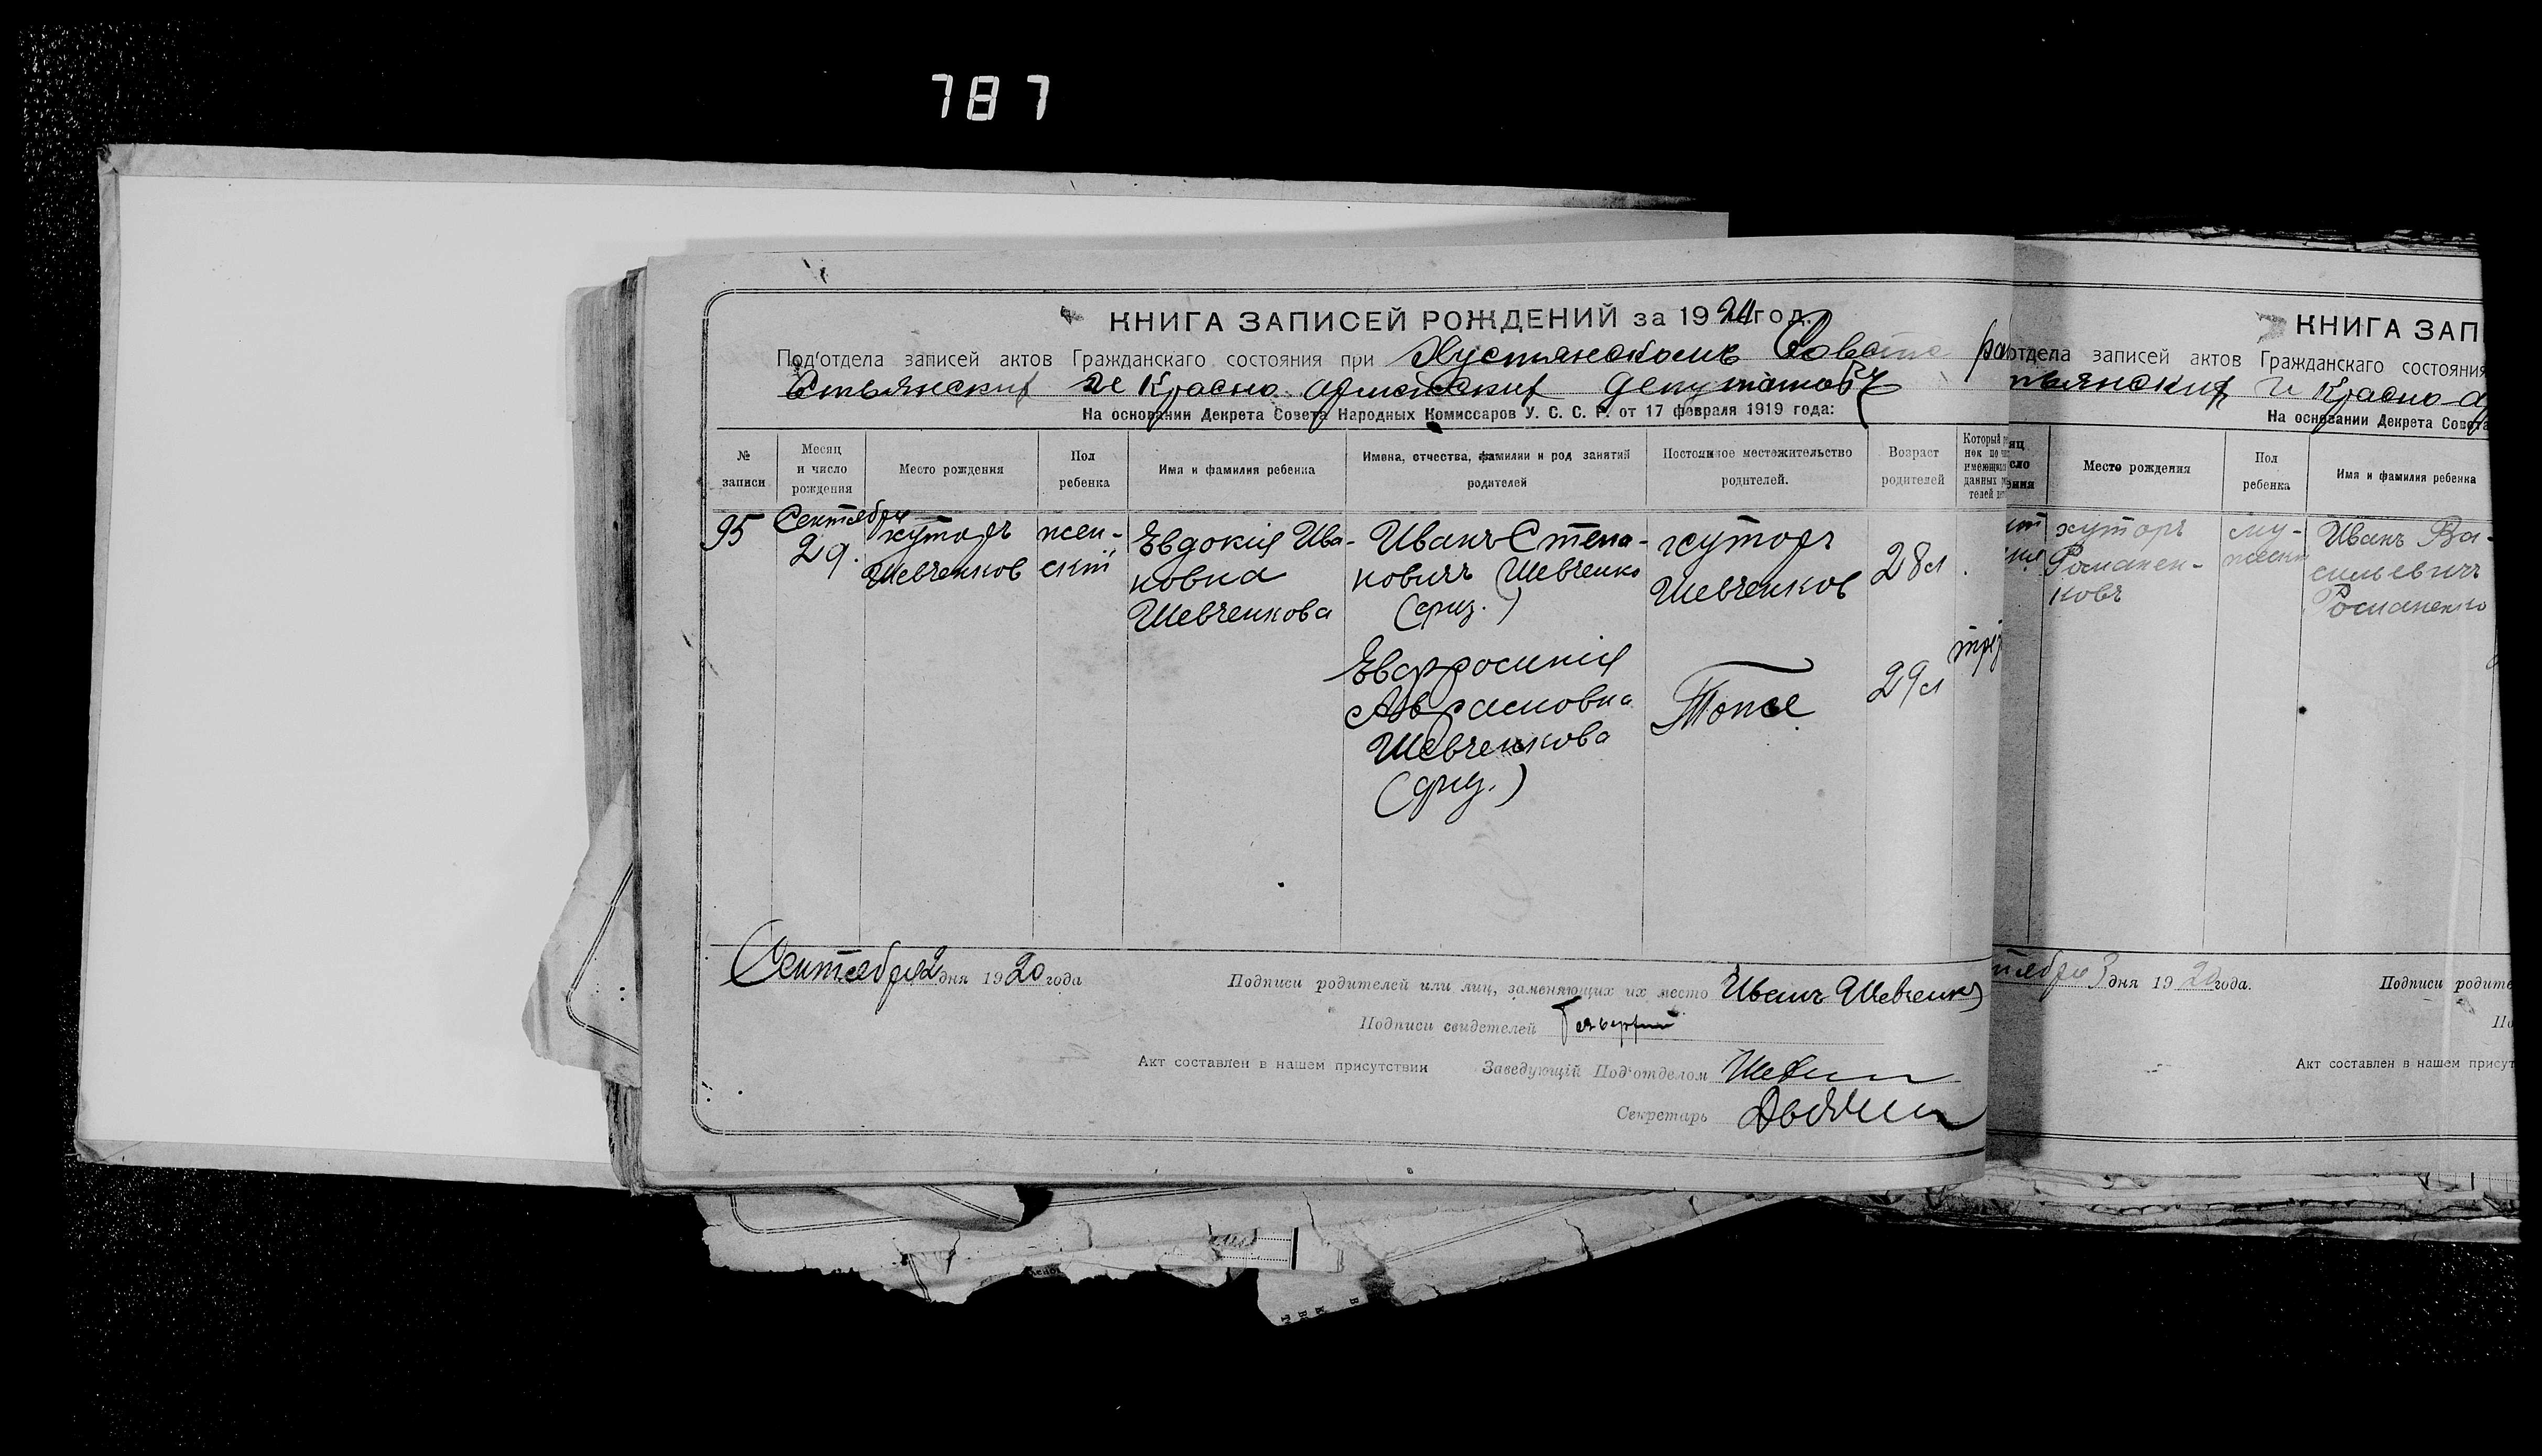 787
КНИГА ЗАПИСЕЙ РОЖДЕНИЙ за 1920 год.
Под'отдела записей актов Гражданскаго состояния при Хустянскомъ Совѣте
естьянских и Красно-армейских депутатовъ
На основании Декрета Совета Народных Комиссаров У. С. С. Р. от 17 февраля 1919 года:
№ записи
Месяц и число рождения
Место рождения
Пол ребенка
Имя и фамилия ребенка
Имена, отчества, фамилии и род занятий родителей
Постоянное местежительство родителей.
Возраст родителей
95
Сентября
29.
хуторъ
Шевченков
жен-
скій
Евдокия Ива-
новна
Шевченкова
Иванъ Степа-
новичъ Шевченко
Евфросинія
Авраамовна
Шевченкова
хуторъ
Шевченков
Тоже
28 л
29 л
Сентября 2 дня 1920 года
Подписи родителей или лиц, заменяющих их место Иванъ Шевченко
Подписи свидетелей
Акт составлен в нашем присутствии Заведующій Под'отделом
Секретарь
КНИГА ЗАП
отдела записей актов Гражданскаго состояния
тьянских и Красно-а
На основании Декрета Совета
Место рождения
Пол ребенка
Имя и фамилия ребенка
хуторъ
Романен-
ковъ
му-
жской
Иванъ Ва-
сильевичъ
Романенко
тября 3 дня 1920 года.
Подписи родите
Акт составлен в нашем присут